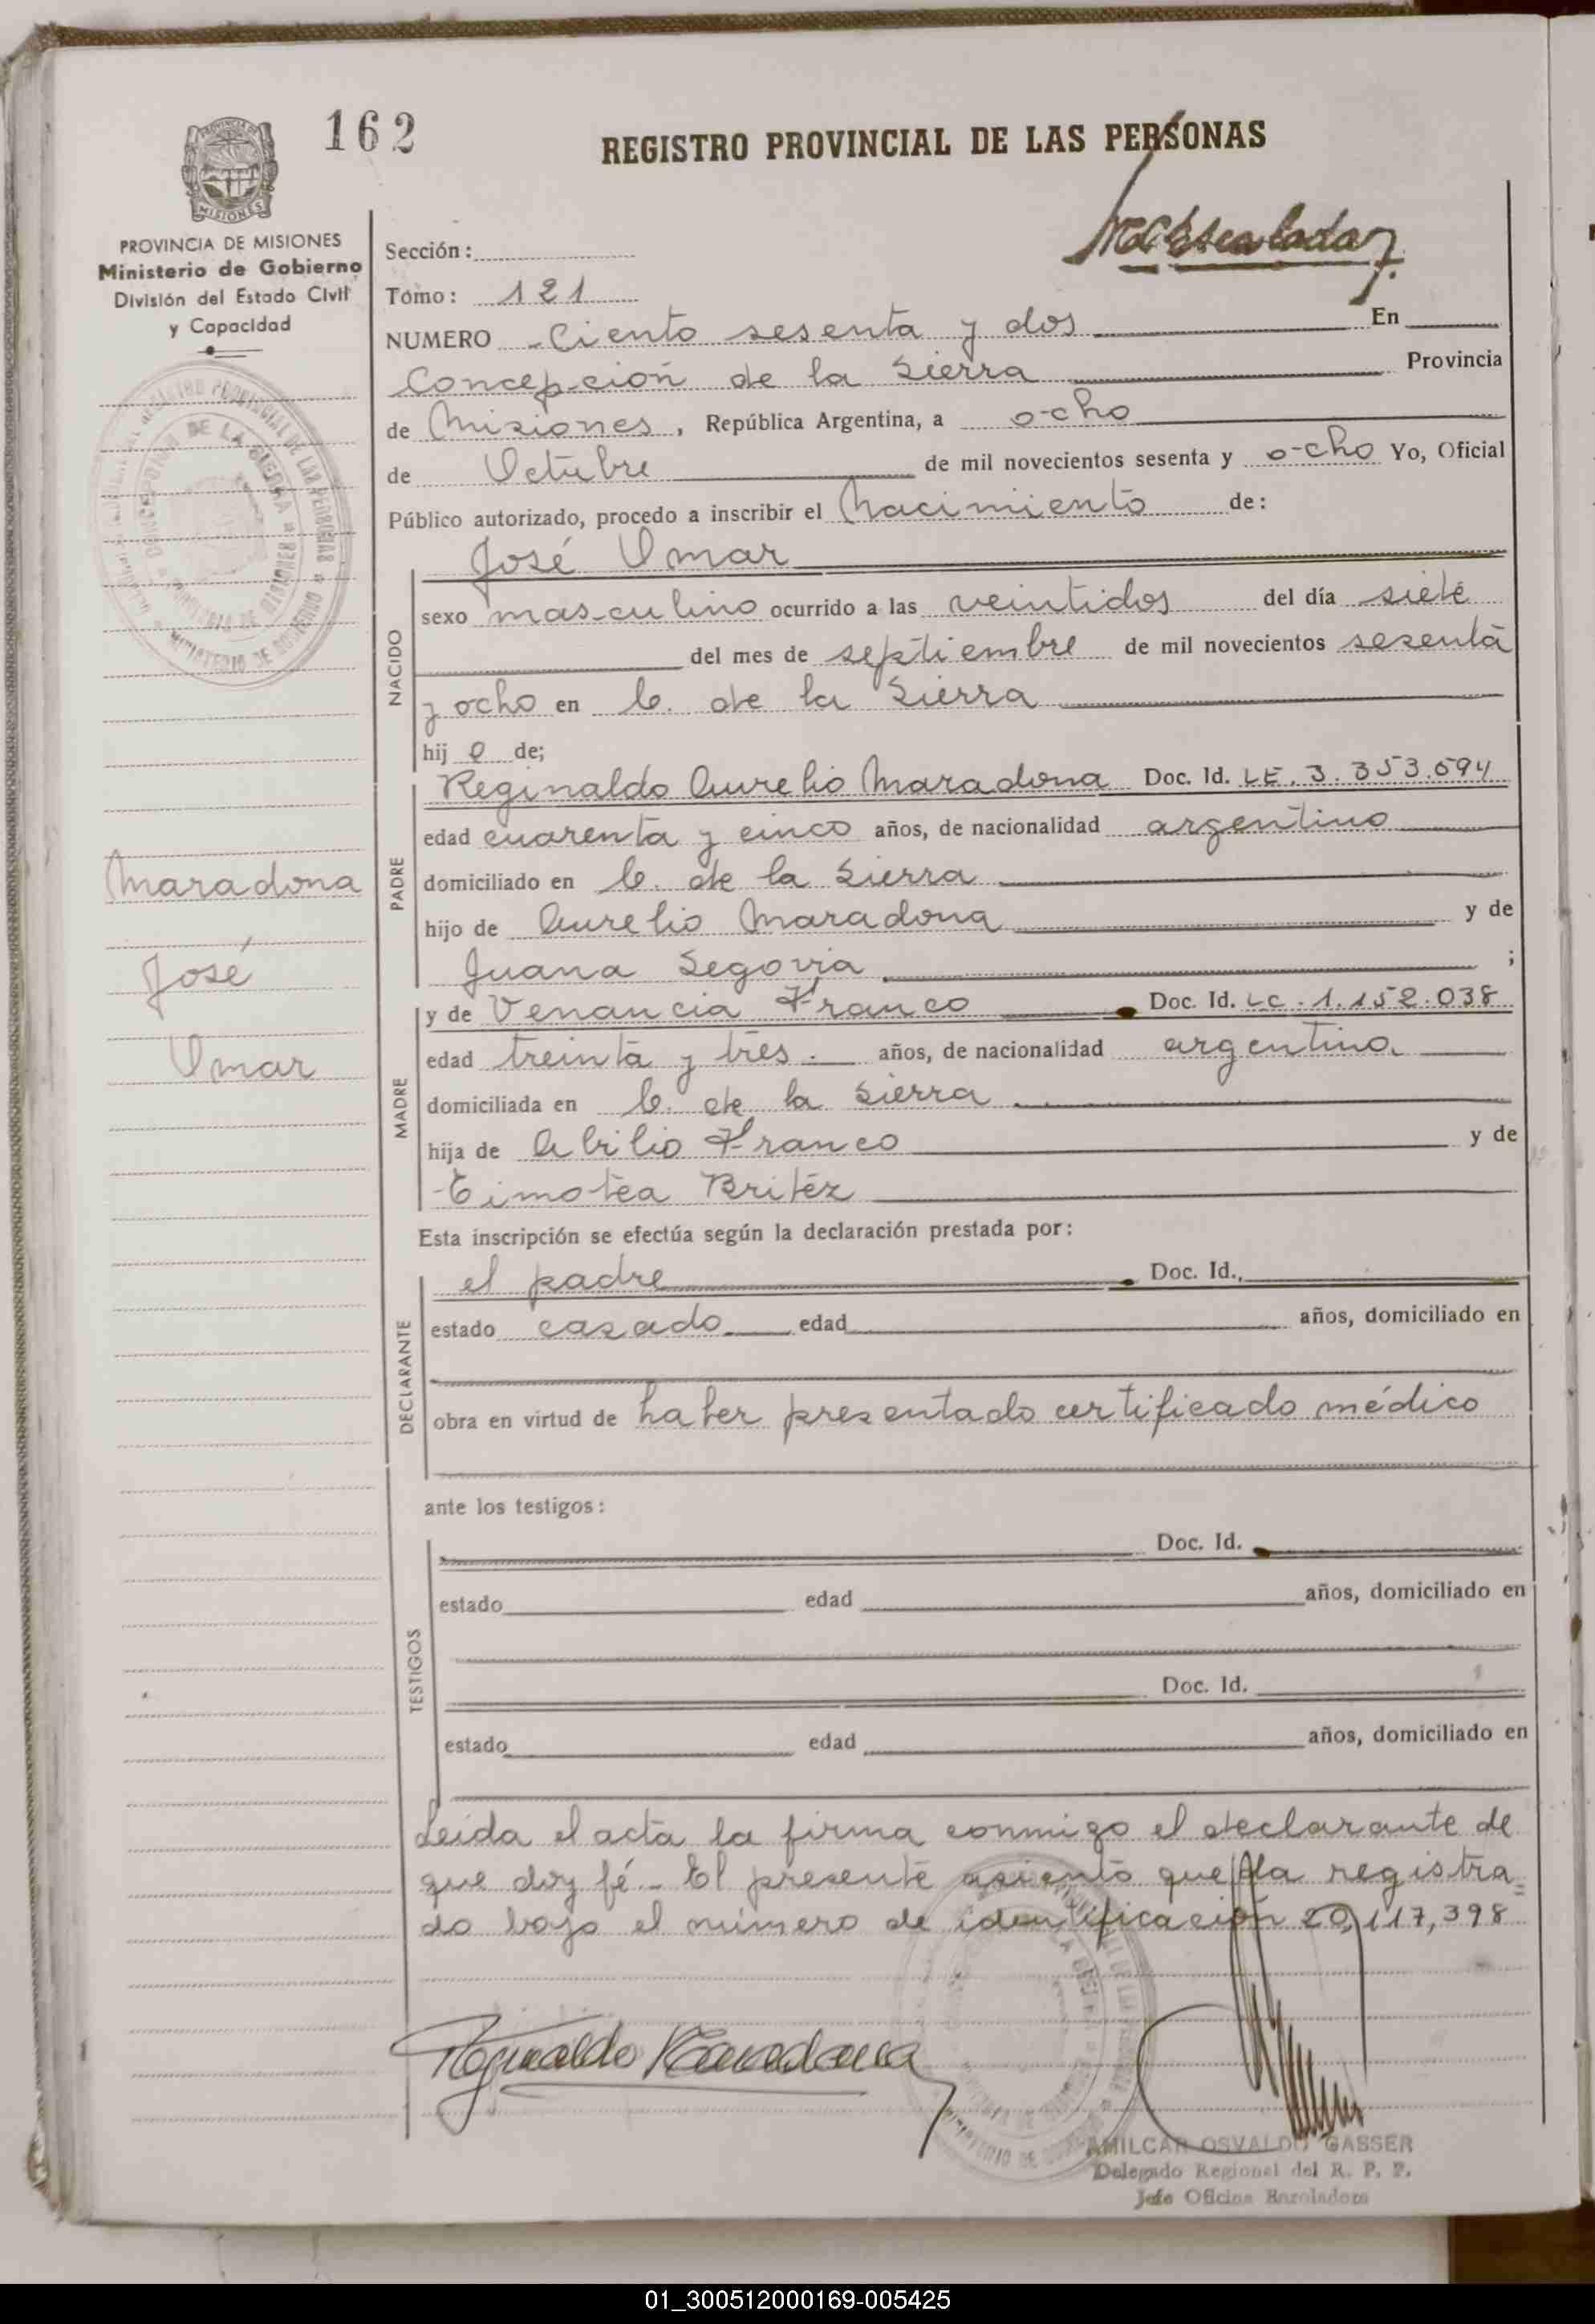 162
REGISTRO PROVINCIAL DE LAS PERSONAS
PROVINCIA DE MISIONES
Ministerio de Gobierno
División del Estado Civil
y Capacidad
Sección:
Tomo: 121
NUMERO Ciento sesenta y dos En
Concepción de la Sierra Provincia
de Misiones, República Argentina, a ocho
de Octubre de mil novecientos sesenta y ocho Yo, Oficial
Público autorizado, procedo a inscribir el Nacimiento de:
José Omar
NACIDO
sexo masculino ocurrido a las veintidos del día siete
del mes de septiembre de mil novecientos sesenta
y ocho en C. de la Sierra
hij o de;
PADRE
Reginaldo Aurelio Maradona Doc. Id. LE. 3.353.594
edad cuarenta y cinco años, de nacionalidad argentino
domiciliado en C. de la Sierra
hijo de Aurelio Maradona y de
Juana Segovia ;
MADRE
y de Venancia Franco Doc. Id. LC. 1.152.038
edad treinta y tres. años, de nacionalidad argentina
domiciliada en C. de la Sierra
hija de Abilio Franco y de
Timotea Britéz
Maradona
José
Omar
Esta inscripción se efectúa según la declaración prestada por:
DECLARANTE
el padre Doc. Id.
estado casado edad años, domiciliado en
obra en virtud de haber presentado certificado médico
ante los testigos:
TESTIGOS
Doc. Id.
estado edad años, domiciliado en
Doc. Id.
estado edad años, domiciliado en
Leida el acta la firma conmigo el declarante de
que doy fé. - El presente asiento queda registra=
do bajo el número de identificación 20,117,398
Reginaldo Maradona
AMILCAR OSVALDO GASSER
Delegado Regional del R. P. P.
Jefe Oficina Enroladora
01_300512000169-005425